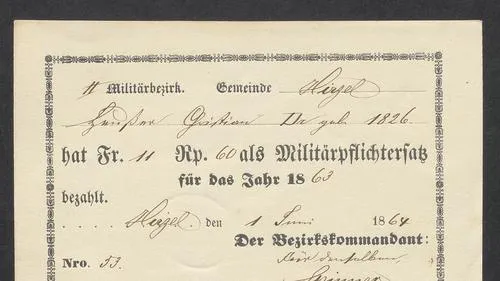 II Militärbezirk. Gemeinde Hirzel
Heußer Christian Dr geb. 1826.
hat Fr. 11 Rp. 60 als Militärpflichtersatz
für das Jahr 1863
bezahlt.
. . . . Hirzel. den 1 Juni 1864
Der Bezirkskommandant:
Für denselben,
Nro. 53.